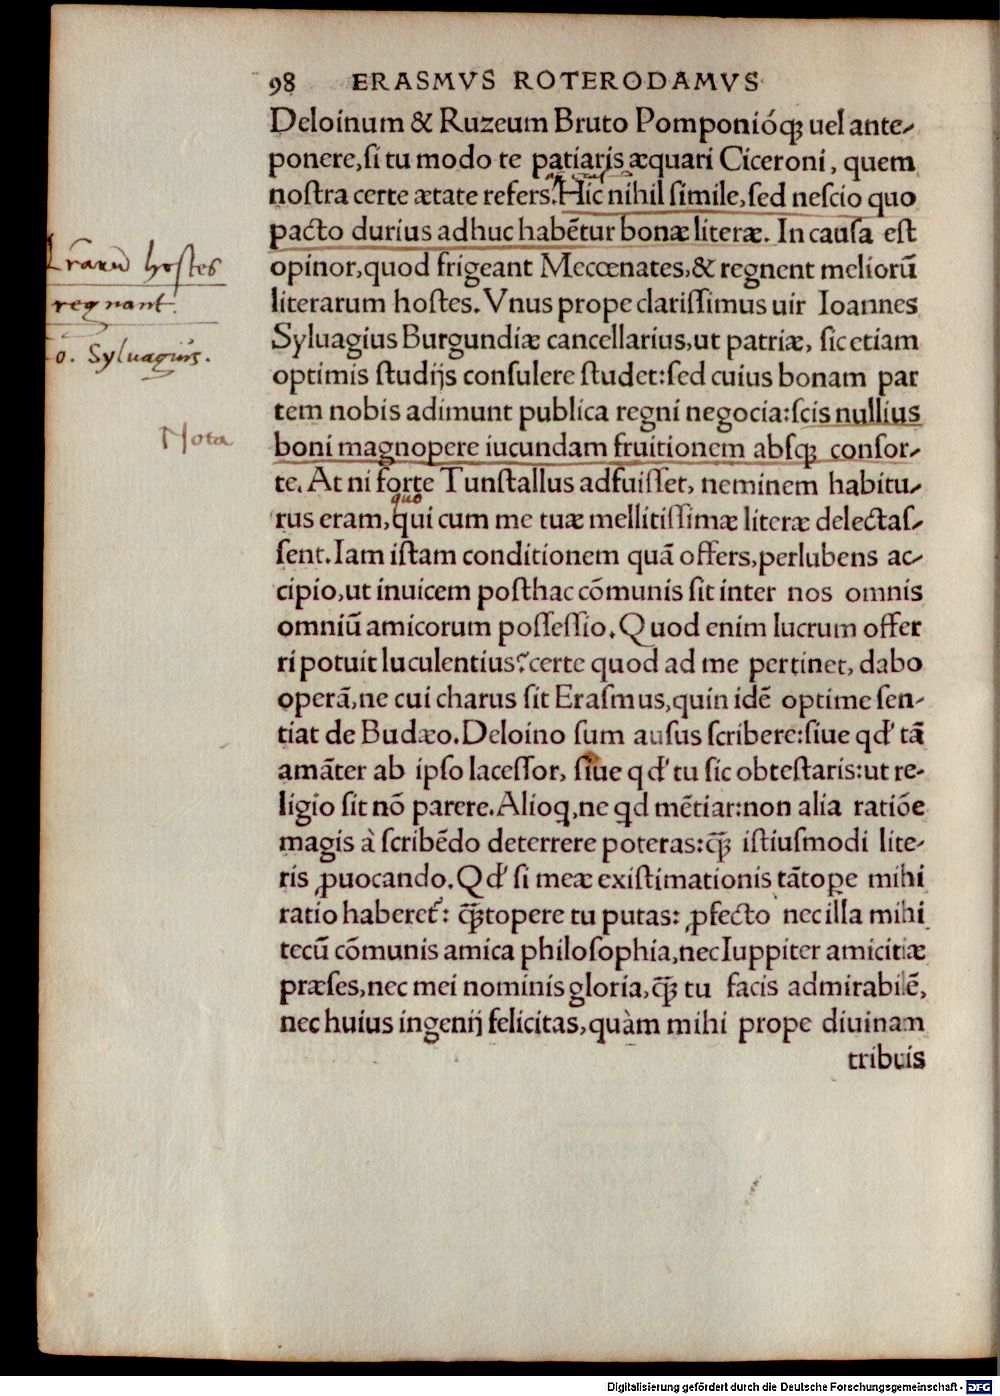 98 ERASMVS ROTERODAMVS
Deloinum & Ruzeum Bruto Pomponióqꝫ uel ante-
ponere, si tu modo te patiaris æquari Ciceroni, quem
nostra certe ætate refers. Hic nihil simile, sed nescio quo
pacto durius adhuc habẽtur bonæ literæ. In causa est
opinor, quod frigeant Mecœnates, & regnent meliorũ
literarum hostes. Vnus prope clarissimus uir Ioannes
Syluagius Burgundiæ cancellarius, ut patriæ, sic etiam
optimis studijs consulere studet: sed cuius bonam par
tem nobis adimunt publica regni negocia: scis nullius
boni magnopere iucundam fruitionem absqꝫ consor-
te. At ni forte Tunstallus adfuisset, neminem habitu-
quo
rus eram, qui cum me tuæ mellitissimæ literæ delectas-
sent. Iam istam conditionem quã offers, perlubens ac-
cipio, ut inuicem posthac cõmunis sit inter nos omnis
omniũ amicorum possessio. Quod enim lucrum offer
ri potuit luculentius? certe quod ad me pertinet, dabo
operã, ne cui charus sit Erasmus, quin idẽ optime sen-
tiat de Budæo. Deloino sum ausus scribere: siue qd' tã
amãter ab ipso lacessor, siue qd' tu sic obtestaris: ut re-
ligio sit nõ parere. Alioq, ne qd mẽtiar: non alia ratiõe
magis à scribẽdo deterrere poteras: q̃ꝫ istiusmodi lite-
ris ꝓuocando. Qd' si meæ existimationis tãtoꝑe mihi
ratio haberet': q̃ꝫtopere tu putas: ꝓfecto nec illa mihi
tecũ cõmunis amica philosophia, nec Iuppiter amicitiæ
præses, nec mei nominis gloria, q̃ꝫ tu facis admirabilẽ,
nec huius ingenij felicitas, quàm mihi prope diuinam
tribuis
hostes
regnant.
Io. Syluagius.
Nota
Digitalisierung gefördert durch die Deutsche Forschungsgemeinschaft - DFG